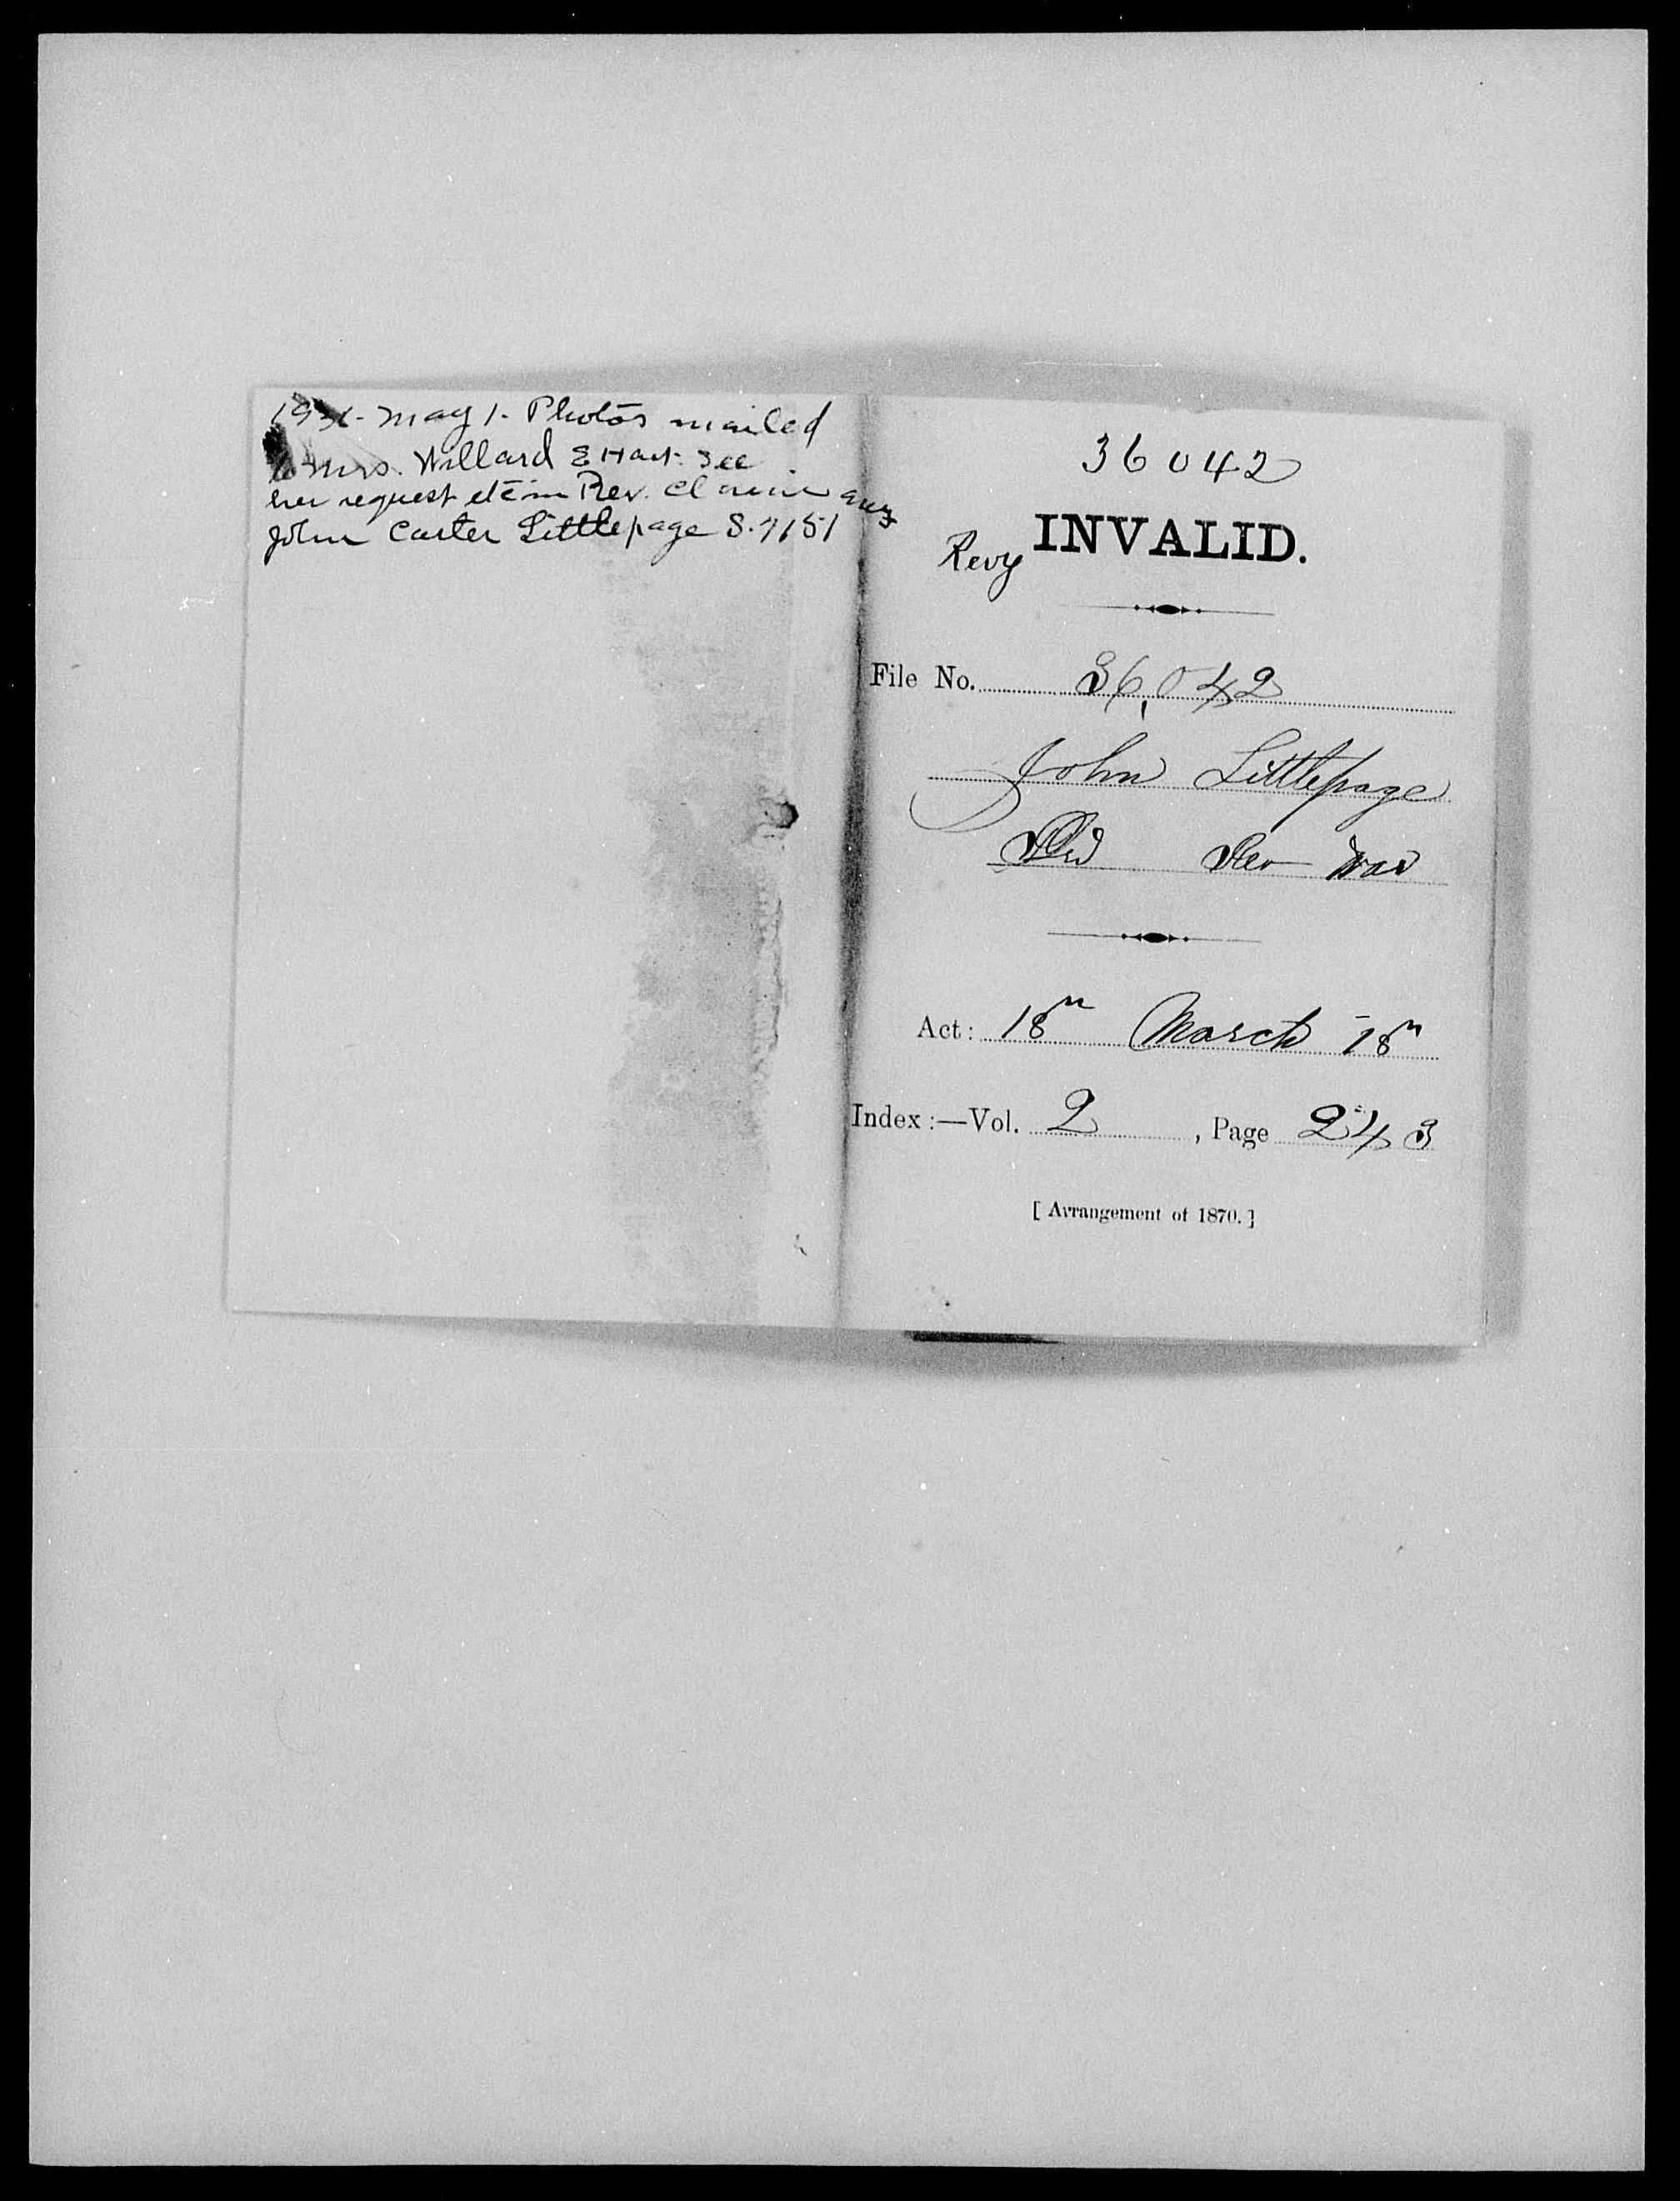 May 1. Photos mailed
to Mrs. Willard E Hart. See
her request etc in Rev. Claim
John Carter Littlepage S.7151
36042
Revy INVALID.
File No. 36,042
John Littlepage
Rev War
Act: 18th March 18
Index:—Vol. 2, Page 243
[Arrangement of 1870.]